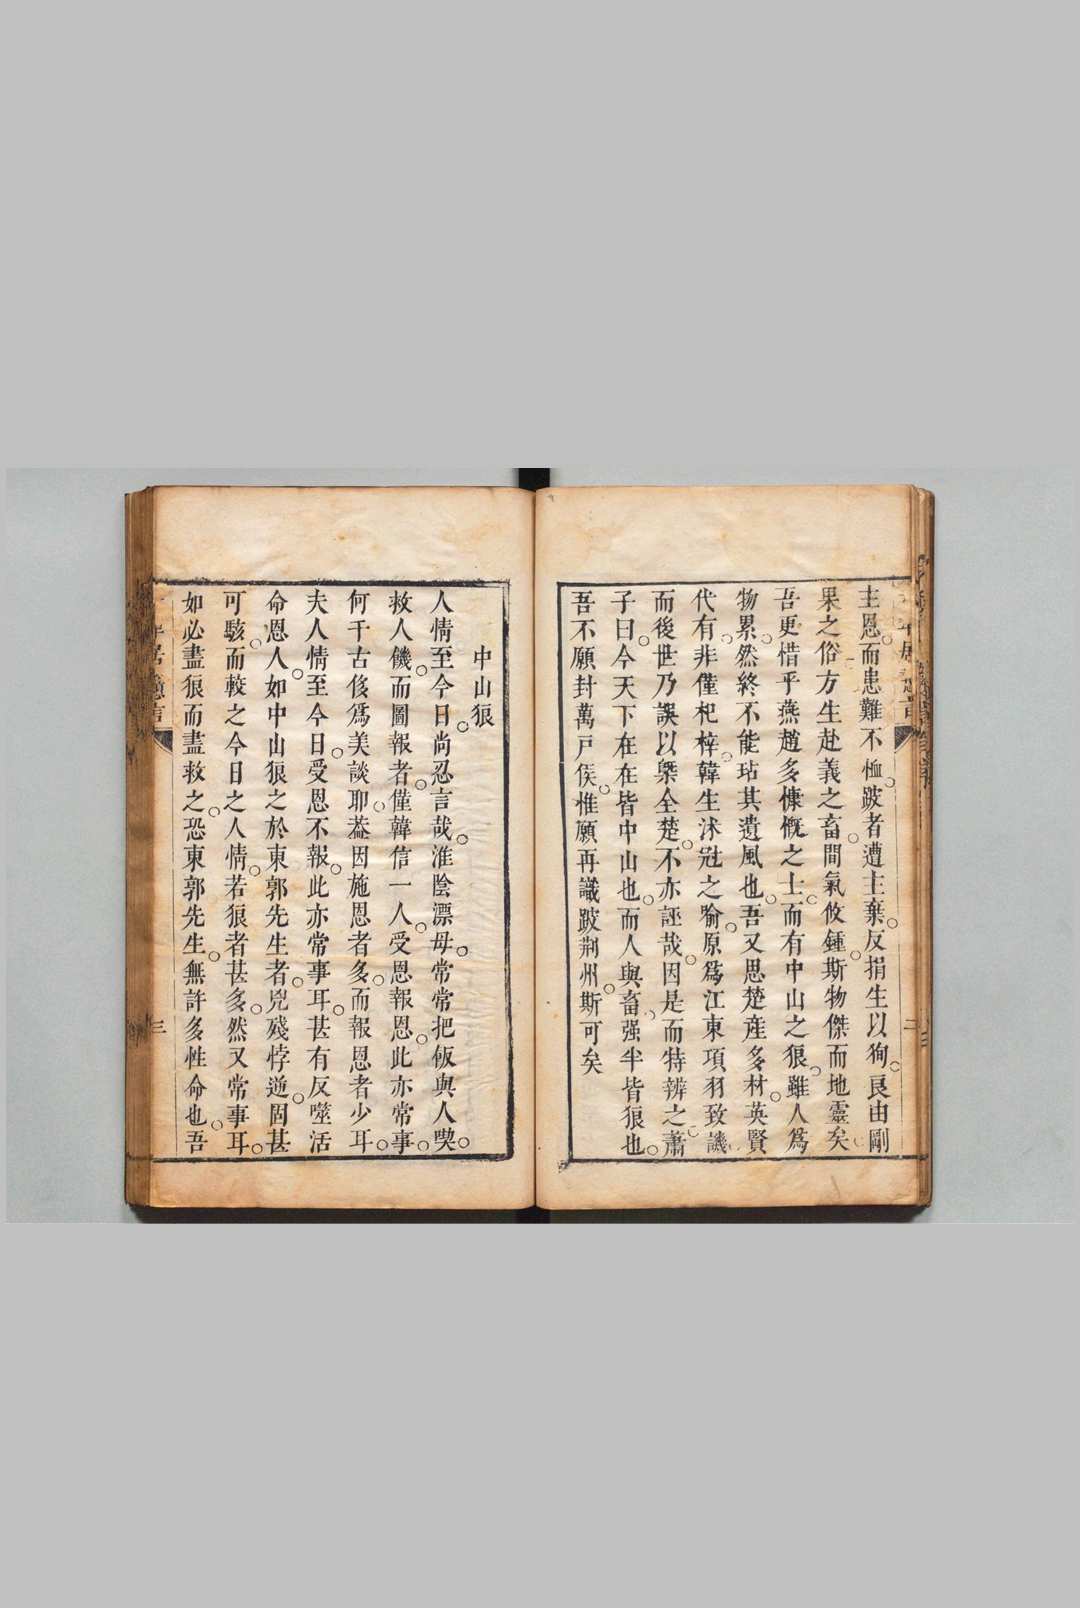 主恩而患難不恤跛者遭主棄反捐生以狥良由剛
果之俗方生赴義之畜間氣攸鍾斯物傑而地靈矣
吾更惜乎燕趙多慷慨之士而有中山之狼雖人爲
物累然終不能玷其遺風也吾又思楚産多材英賢
代有非僅杞梓韓生沐冠之喻原爲江東項羽致譏
而後世乃誤以槩全楚不亦誣哉因是而特辨之蕭
子曰今天下在在皆中山也而人與畜强半皆狼也
吾不願封萬戸侯惟願再識跛荆州斯可矣
中山狼
人情至今日尚忍言哉淮陰漂母常常把飯與人喫
救人饑而圖報者僅韓信一人受恩報恩此亦常事
何千古侈爲美談耶葢因施恩者多而報恩者少耳
夫人情至今日受恩不報此亦常事耳甚有反噬活
命恩人如中山狼之於東郭先生者兇殘悖逆固甚
可駭而較之今日之人情若狼者甚多然又常事耳
如必盡狼而盡救之恐東郭先生無許多性命也吾
三